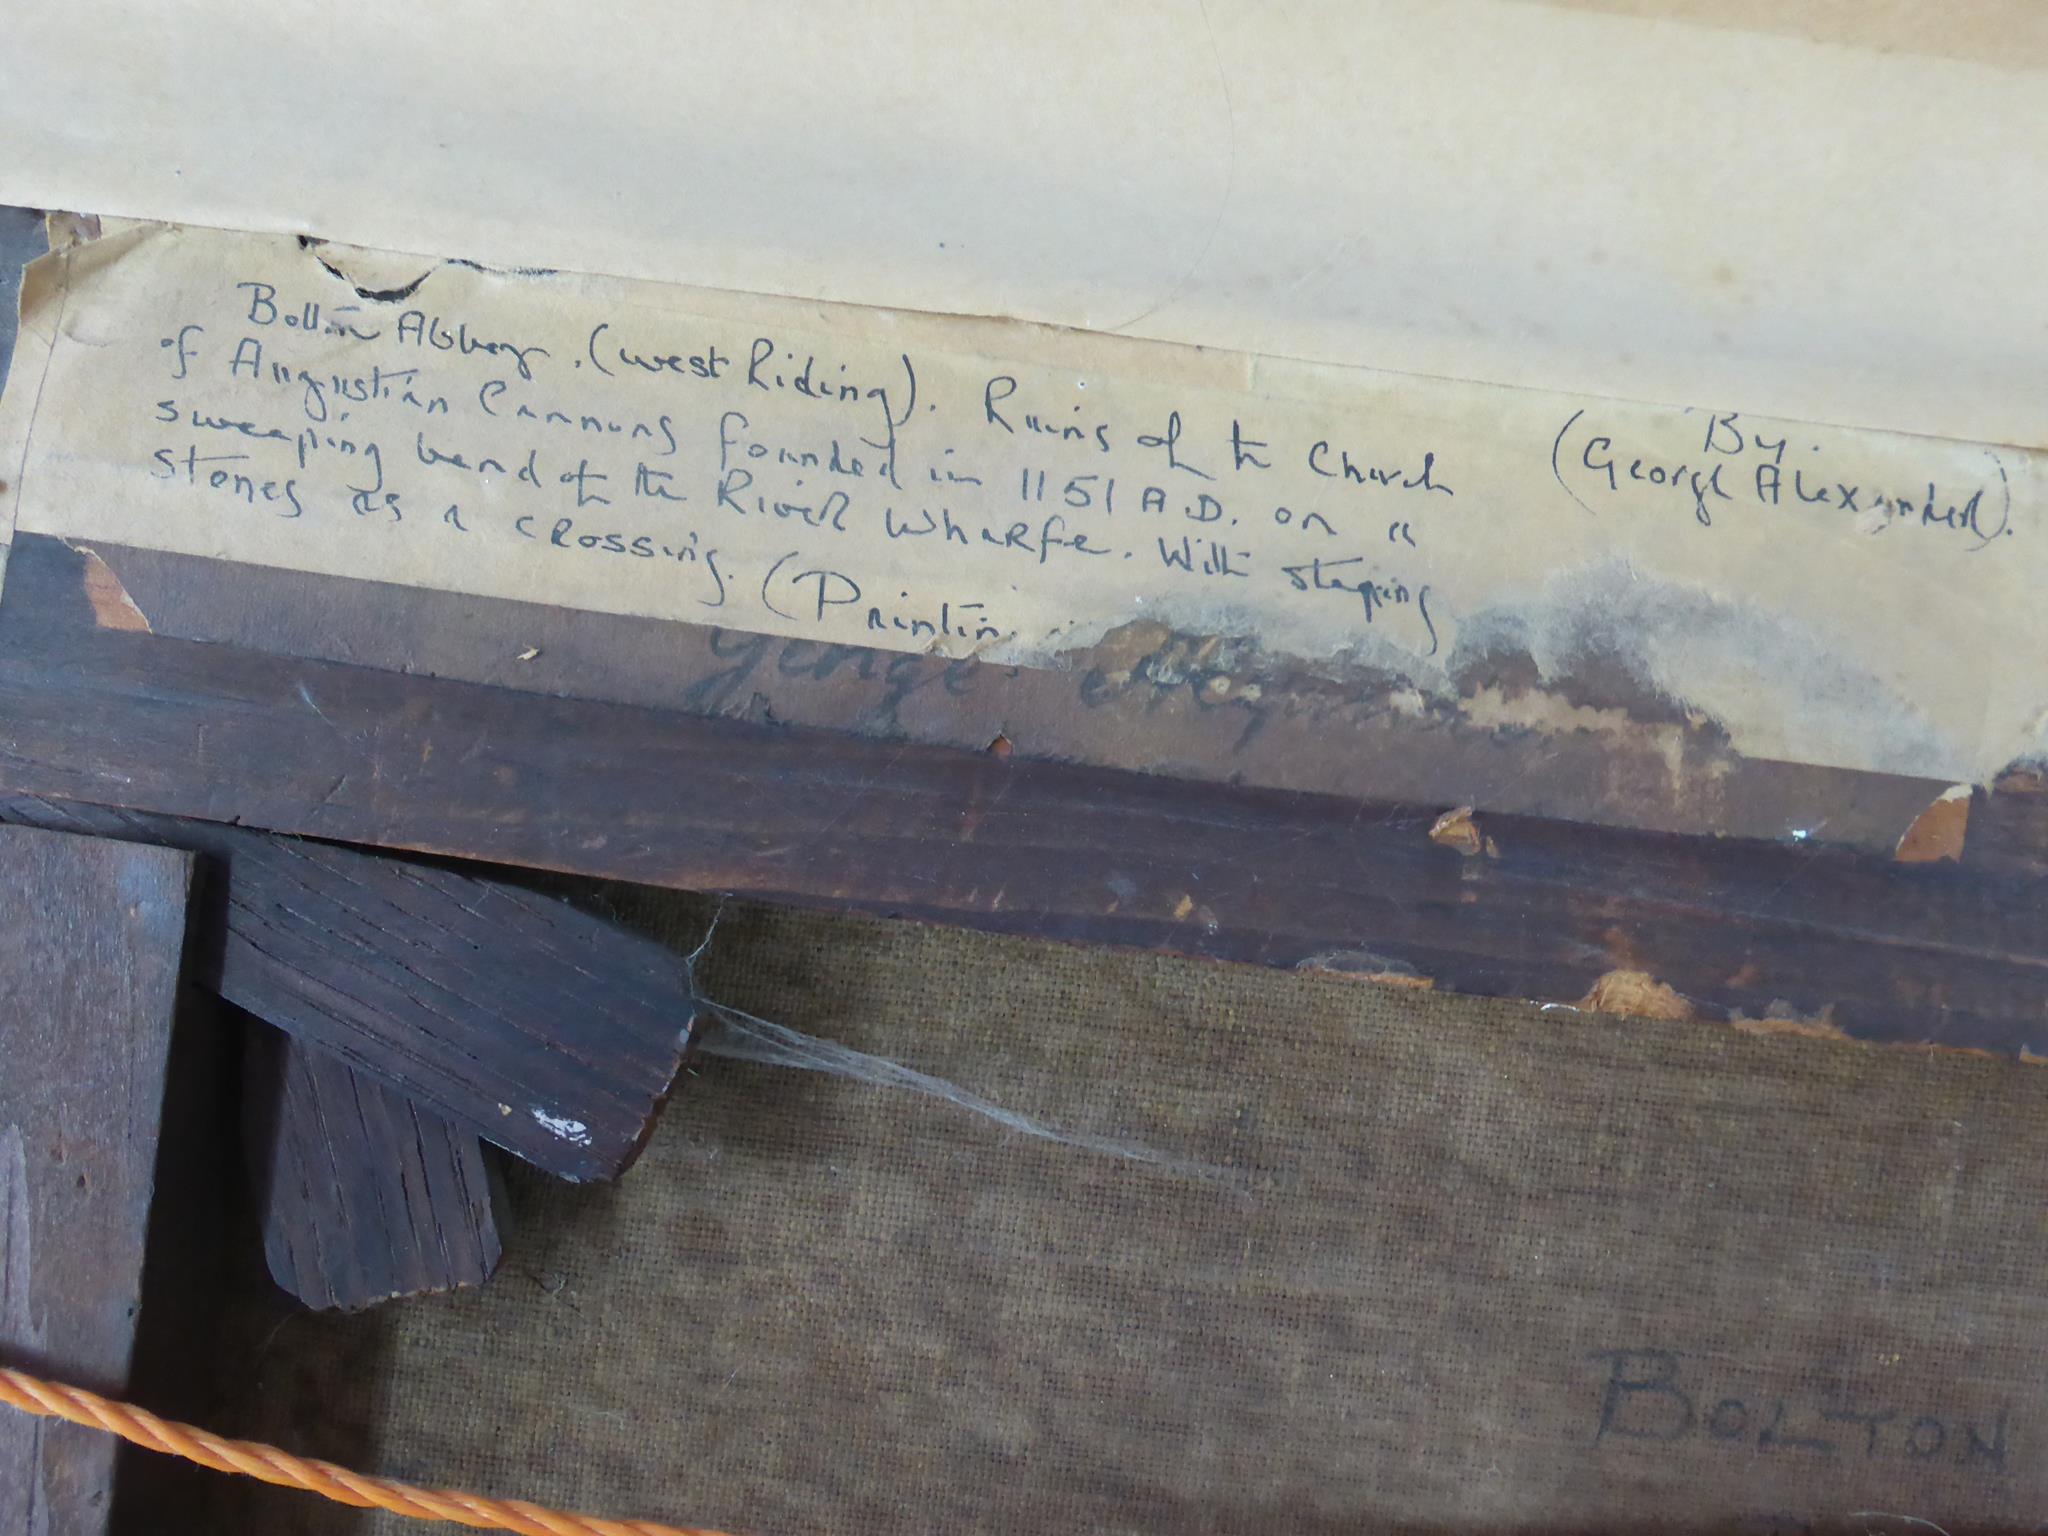 Bolton Abbey. (West Riding). Ruins of the Church
of Augustian Cannons founded in 1151 A.D. on a
sweeping bend of the River Wharfe. With steping
stones as a crossing. (Printin
By.
(George Alexander).
George
BOLTON